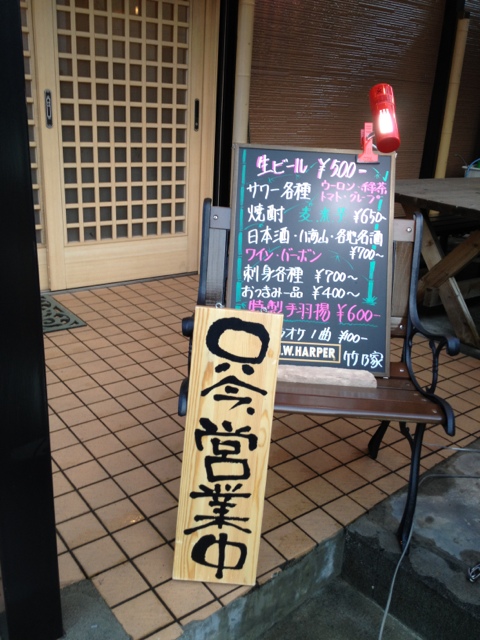 生ビール ¥500-
サワー各種 ウーロン・緑茶
トマト・グレープ
焼酎 麦 ¥650
日本酒・八海山・各地名酒
ワイン・バーボン ¥700〜
刺身各種 ¥700〜
おつまみ一品 ¥400〜
特製手羽揚 ¥600-
オケ1曲 ¥100-
W.HARPER 竹乃家
只今営業中